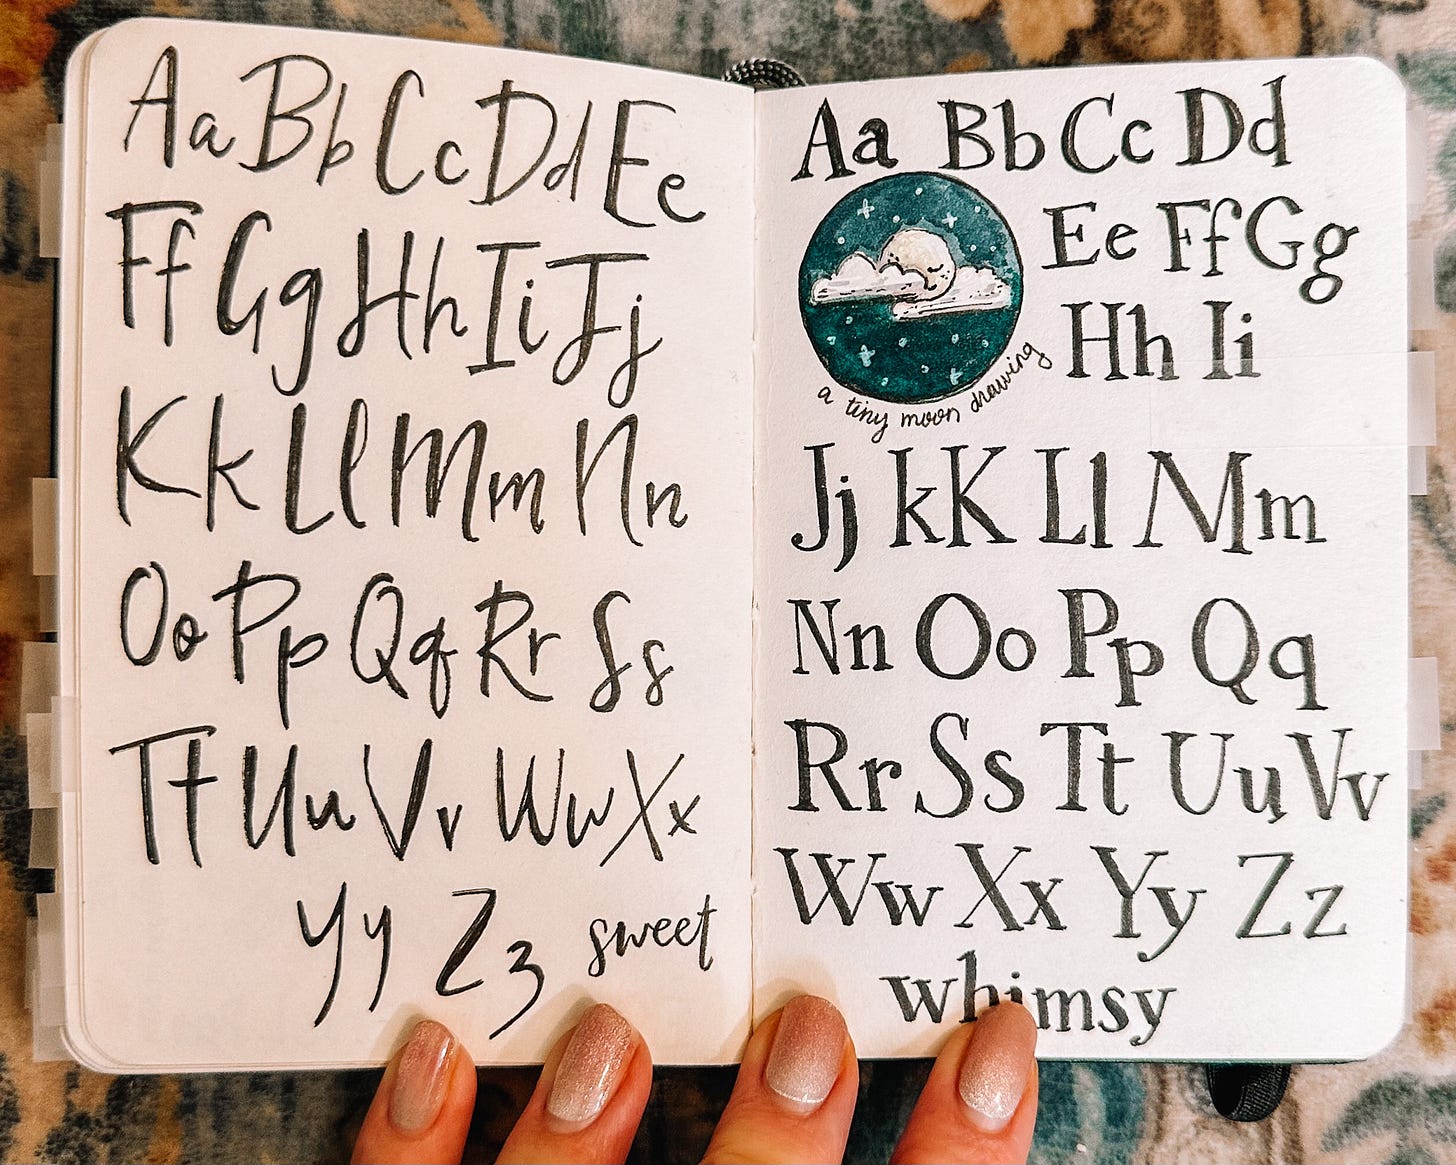 Aa Bb Cc Dd Ee
Ff Gg Hh Ii Jj
Kk Ll Mm Nn
Oo Pp Qq Rr Ss
Tt Uu Vv Ww Xx
Yy Zz sweet
Aa Bb Cc Dd
Ee Ff Gg
Hh Ii
a tiny moon drawing
Jj kK Ll Mm
Nn Oo Pp Qq
Rr Ss Tt Uu Vv
Ww Xx Yy Zz
whimsy